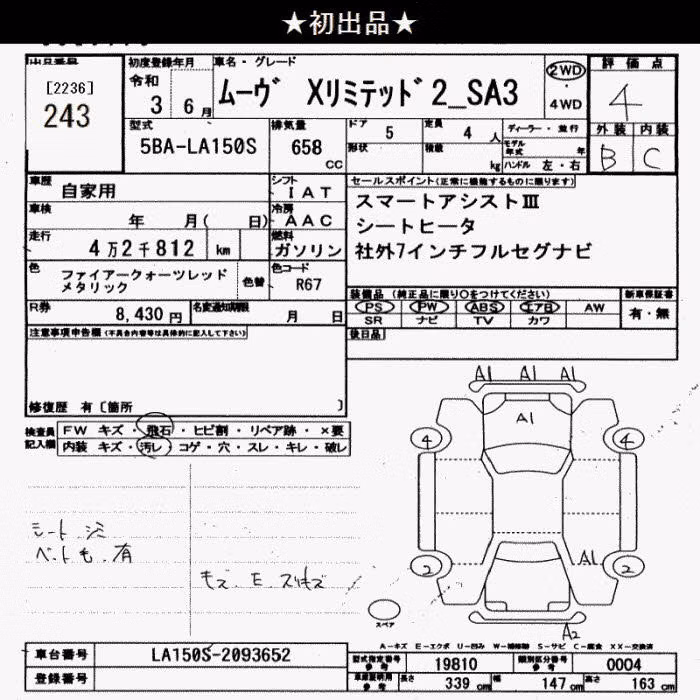 ★初出品★
出品番号
[2236]
243
初度登録年月
令和
3 6月
車名・グレード
ムーヴ Xリミテッド2_SA3
2WD
・
4WD
評価点
4
外装 内装
B C
型式
5BA-LA150S
排気量
658
CC
ドア 5
形状
定員 4 人
積載 kg
ディーラー・並行
モデル年式 年
ハンドル 左・右
車歴
自家用
シフト
IAT
車検
年 月( 日)
冷房
AAC
走行
4万2千812 km
燃料
ガソリン
色
ファイアークォーツレッド
メタリック
色替
色コード
R67
セールスポイント(正常に機能するものに限ります)
スマートアシストⅢ
シートヒータ
社外7インチフルセグナビ
R券
8,430 円
名変通知期限
月 日
装備品 (純正品に限り○をつけてください)
PS PW ABS エアB AW
SR ナビ TV カワ
新車保証書
有・無
後日品
注意事項申告欄(不具合内容等は具体的に記入して下さい)
修復歴 有〔箇所 〕
検査員
記入欄
FW キズ・飛石・ヒビ割・リペア跡・×要
内装 キズ・汚レ・コゲ・穴・スレ・キレ・破レ
シート シミ
ペットも.有
キズ E スリキズ
A1 A1 A1
A1
4 4
A1
2 2
スペア
A2
A-キズ E-エクボ U-凹み W-補修跡 S-サビ C-腐食 XX-交換済
車台番号
LA150S-2093652
登録番号
型式指定番号
参考
19810
類別区分番号
参考
0004
車庫証明用
参考
長さ 339 cm
幅 147 cm
高さ 163 cm